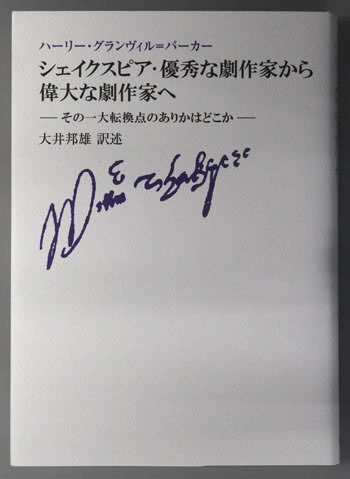 ハーリー・グランヴィル=バーカー
シェイクスピア・優秀な劇作家から
偉大な劇作家へ
― その一大転換点のありかはどこか ―
大井邦雄 訳述